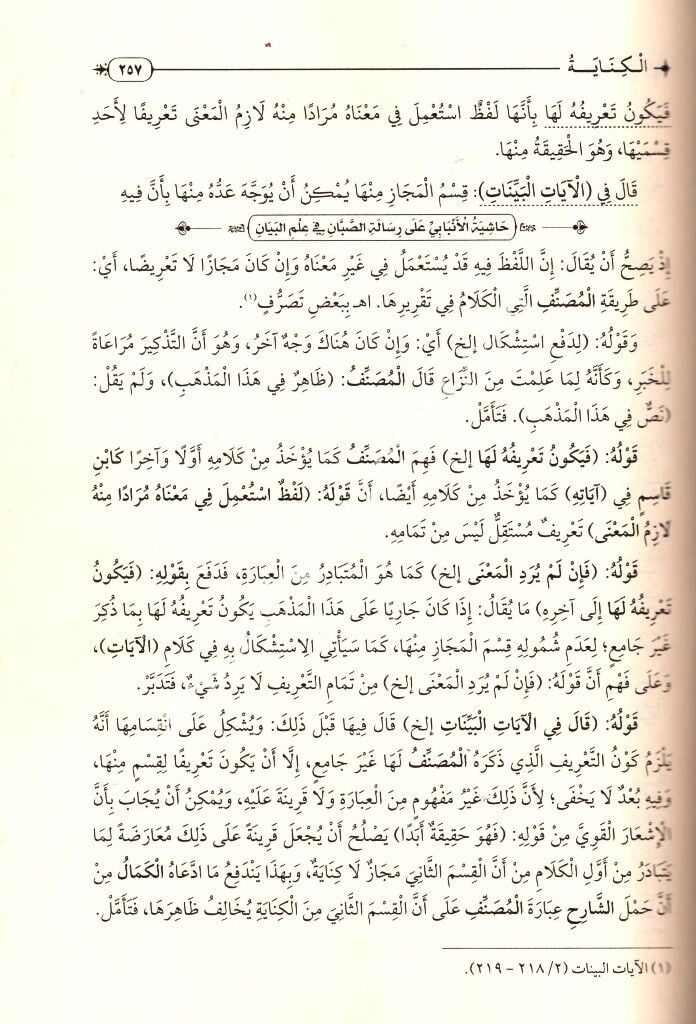 الْكِنَايَـــةُ
٢٥٧
فَيَكُونُ تَعْرِيفُهُ لَهَا بِأَنَّهَا لَفْظٌ اسْتُعْمِلَ فِي مَعْنَاهُ مُرَادًا مِنْهُ لَازِمُ الْمَعْنَى تَعْرِيفًا لِأَحَدِ
قِسْمَيْهَا، وَهُوَ الْحَقِيقَةُ مِنْهَا.
قَالَ فِي (الْآيَاتِ الْبَيِّنَاتِ): قِسْمُ الْمَجَازِ مِنْهَا يُمْكِنُ أَنْ يُوَجَّهَ عَدُّهُ مِنْهَا بِأَنَّ فِيهِ
حَاشِيَةُ الْأَنْبَابِيِّ عَلَى رِسَالَةِ الصَّبَّانِ فِي عِلْمِ الْبَيَانِ
إِذْ يَصِحُّ أَنْ يُقَالَ: إِنَّ اللَّفْظَ فِيهِ قَدْ يُسْتَعْمَلُ فِي غَيْرِ مَعْنَاهُ وَإِنْ كَانَ مَجَازًا لَا تَعْرِيضًا، أَيْ:
عَلَى طَرِيقَةِ الْمُصَنِّفِ الَّتِي الْكَلَامُ فِي تَقْرِيرِهَا. اهـ بِبَعْضِ تَصَرُّفٍ(١).
وَقَوْلُهُ: (لِدَفْعِ اسْتِشْكَالِ إلخ) أَيْ: وَإِنْ كَانَ هُنَاكَ وَجْهٌ آخَرُ، وَهُوَ أَنَّ التَّذْكِيرَ مُرَاعَاةً
لِلْخَبَرِ، وَكَأَنَّهُ لِمَا عَلِمْتَ مِنَ النِّزَاعِ قَالَ الْمُصَنِّفُ: (ظَاهِرٌ فِي هَذَا الْمَذْهَبِ)، وَلَمْ يَقُلْ:
(نَصٌّ فِي هَذَا الْمَذْهَبِ). فَتَأَمَّلْ.
قَوْلُهُ: (فَيَكُونُ تَعْرِيفُهُ لَهَا إلخ) فَهِمَ الْمُصَنِّفُ كَمَا يُؤْخَذُ مِنْ كَلَامِهِ أَوَّلًا وَآخِرًا كَابْنِ
قَاسِمٍ فِي (آيَاتِهِ) كَمَا يُؤْخَذُ مِنْ كَلَامِهِ أَيْضًا، أَنَّ قَوْلَهُ: (لَفْظٌ اسْتُعْمِلَ فِي مَعْنَاهُ مُرَادًا مِنْهُ
لَازِمُ الْمَعْنَى) تَعْرِيفٌ مُسْتَقِلٌّ لَيْسَ مِنْ تَمَامِهِ.
قَوْلُهُ: (فَإِنْ لَمْ يُرَدِ الْمَعْنَى إلخ) كَمَا هُوَ الْمُتَبَادَرُ مِنَ الْعِبَارَةِ، فَدَفَعَ بِقَوْلِهِ: (فَيَكُونُ
تَعْرِيفُهُ لَهَا إِلَى آخِرِهِ) مَا يُقَالُ: إِذَا كَانَ جَارِيًا عَلَى هَذَا الْمَذْهَبِ يَكُونُ تَعْرِيفُهُ لَهَا بِمَا ذُكِرَ
غَيْرَ جَامِعٍ؛ لِعَدَمِ شُمُولِهِ قِسْمَ الْمَجَازِ مِنْهَا، كَمَا سَيَأْتِي الِاسْتِشْكَالُ بِهِ فِي كَلَامِ (الْآيَاتِ)،
وَعَلَى فَهْمِ أَنَّ قَوْلَهُ: (فَإِنْ لَمْ يُرَدِ الْمَعْنَى إلخ) مِنْ تَمَامِ التَّعْرِيفِ لَا يَرِدُ شَيْءٌ، فَتَدَبَّرْ.
قَوْلُهُ: (قَالَ فِي الْآيَاتِ الْبَيِّنَاتِ إلخ) قَالَ فِيهَا قَبْلَ ذَلِكَ: وَيُشْكِلُ عَلَى انْقِسَامِهَا أَنَّهُ
يَلْزَمُ كَوْنُ التَّعْرِيفِ الَّذِي ذَكَرَهُ الْمُصَنِّفُ لَهَا غَيْرَ جَامِعٍ، إِلَّا أَنْ يَكُونَ تَعْرِيفًا لِقِسْمٍ مِنْهَا،
وَفِيهِ بُعْدٌ لَا يَخْفَى؛ لِأَنَّ ذَلِكَ غَيْرُ مَفْهُومٍ مِنَ الْعِبَارَةِ وَلَا قَرِينَةَ عَلَيْهِ، وَيُمْكِنُ أَنْ يُجَابَ بِأَنَّ
الْإِشْعَارَ الْقَوِيَّ مِنْ قَوْلِهِ: (فَهُوَ حَقِيقَةٌ أَبَدًا) يَصْلُحُ أَنْ يُجْعَلَ قَرِينَةً عَلَى ذَلِكَ مُعَارَضَةً لِمَا
يَتَبَادَرُ مِنْ أَوَّلِ الْكَلَامِ مِنْ أَنَّ الْقِسْمَ الثَّانِيَ مَجَازٌ لَا كِنَايَةٌ، وَبِهَذَا يَنْدَفِعُ مَا ادَّعَاهُ الْكَمَالُ مِنْ
أَنَّ حَمْلَ الشَّارِحِ عِبَارَةَ الْمُصَنِّفِ عَلَى أَنَّ الْقِسْمَ الثَّانِيَ مِنَ الْكِنَايَةِ يُخَالِفُ ظَاهِرَهَا، فَتَأَمَّلْ.
(١) الآيات البينات (٢/ ٢١٨ - ٢١٩).